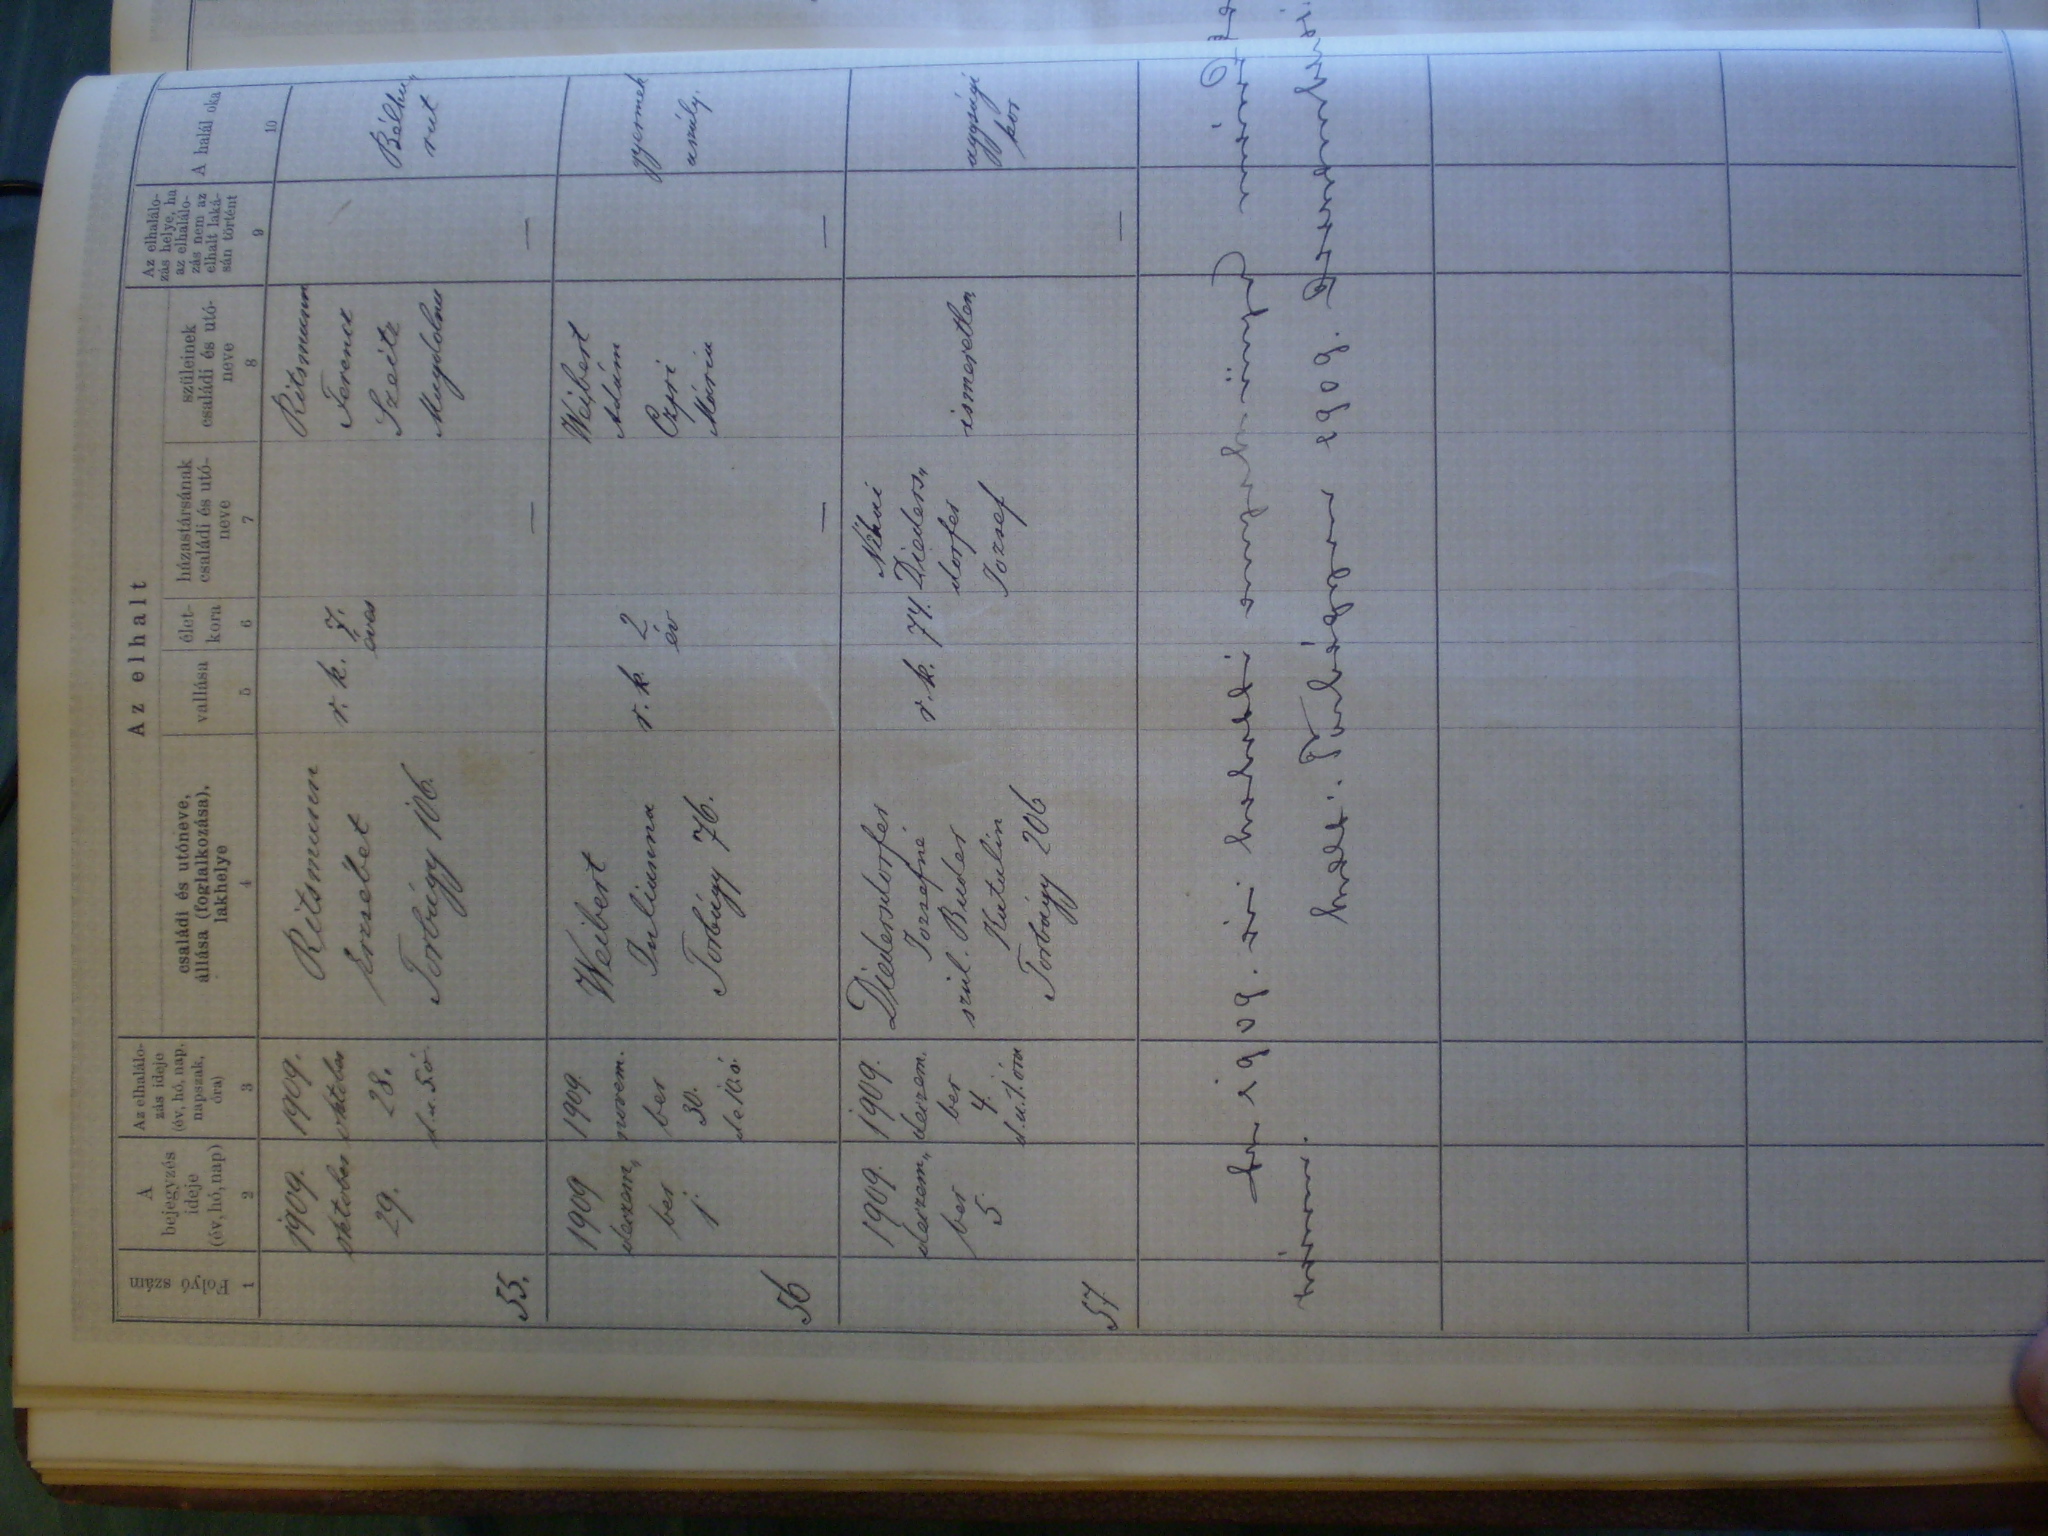 Az elhalt
Folyó szám
A bejegyzés ideje (év, hó, nap)
Az elhalálo-
zás ideje
(év, hó, nap,
napszak,
óra)
családi és utóneve,
állása (foglalkozása),
lakhelye
vallása
élet-
kora
házastársának
családi és utó-
neve
szüleinek
családi és utó-
neve
Az elhalálo-
zás helye, ha
az elhalálo-
zás nem az
elhalt laká-
sán történt
A halál oka
1 2 3 4 5 6 7 8 9 10
55.
1909.
október
29.
1909.
október
28.
d. u. 5 ó.
Ritsmann
Erzsébet
Torbágy 106.
r. k.
7.
éves
—
Ritsmann
Ferencz
Szeitz
Magdolna
—
Bélhu„
rut
56
1909
deczem„
ber
1.
1909.
novem.
ber
30.
Weibert
Julianna
Torbágy 76.
r. k.
2
év
—
Weibert
Ádám
Czpri
Mária
—
gyermek
aszály.
57
1909.
deczem„
ber
5
1909.
deczem.
ber
4.
d. u. 1. óra
Diedersdorfer
Józsefné
szül. Buder
Katalin
Torbágy 206
r. k.
74.
Néhai
Dieders„
dorfer
József
ismeretlen
—
aggsági
kór
1909. évi halotti anyakönyv
Torbágyon 1909.